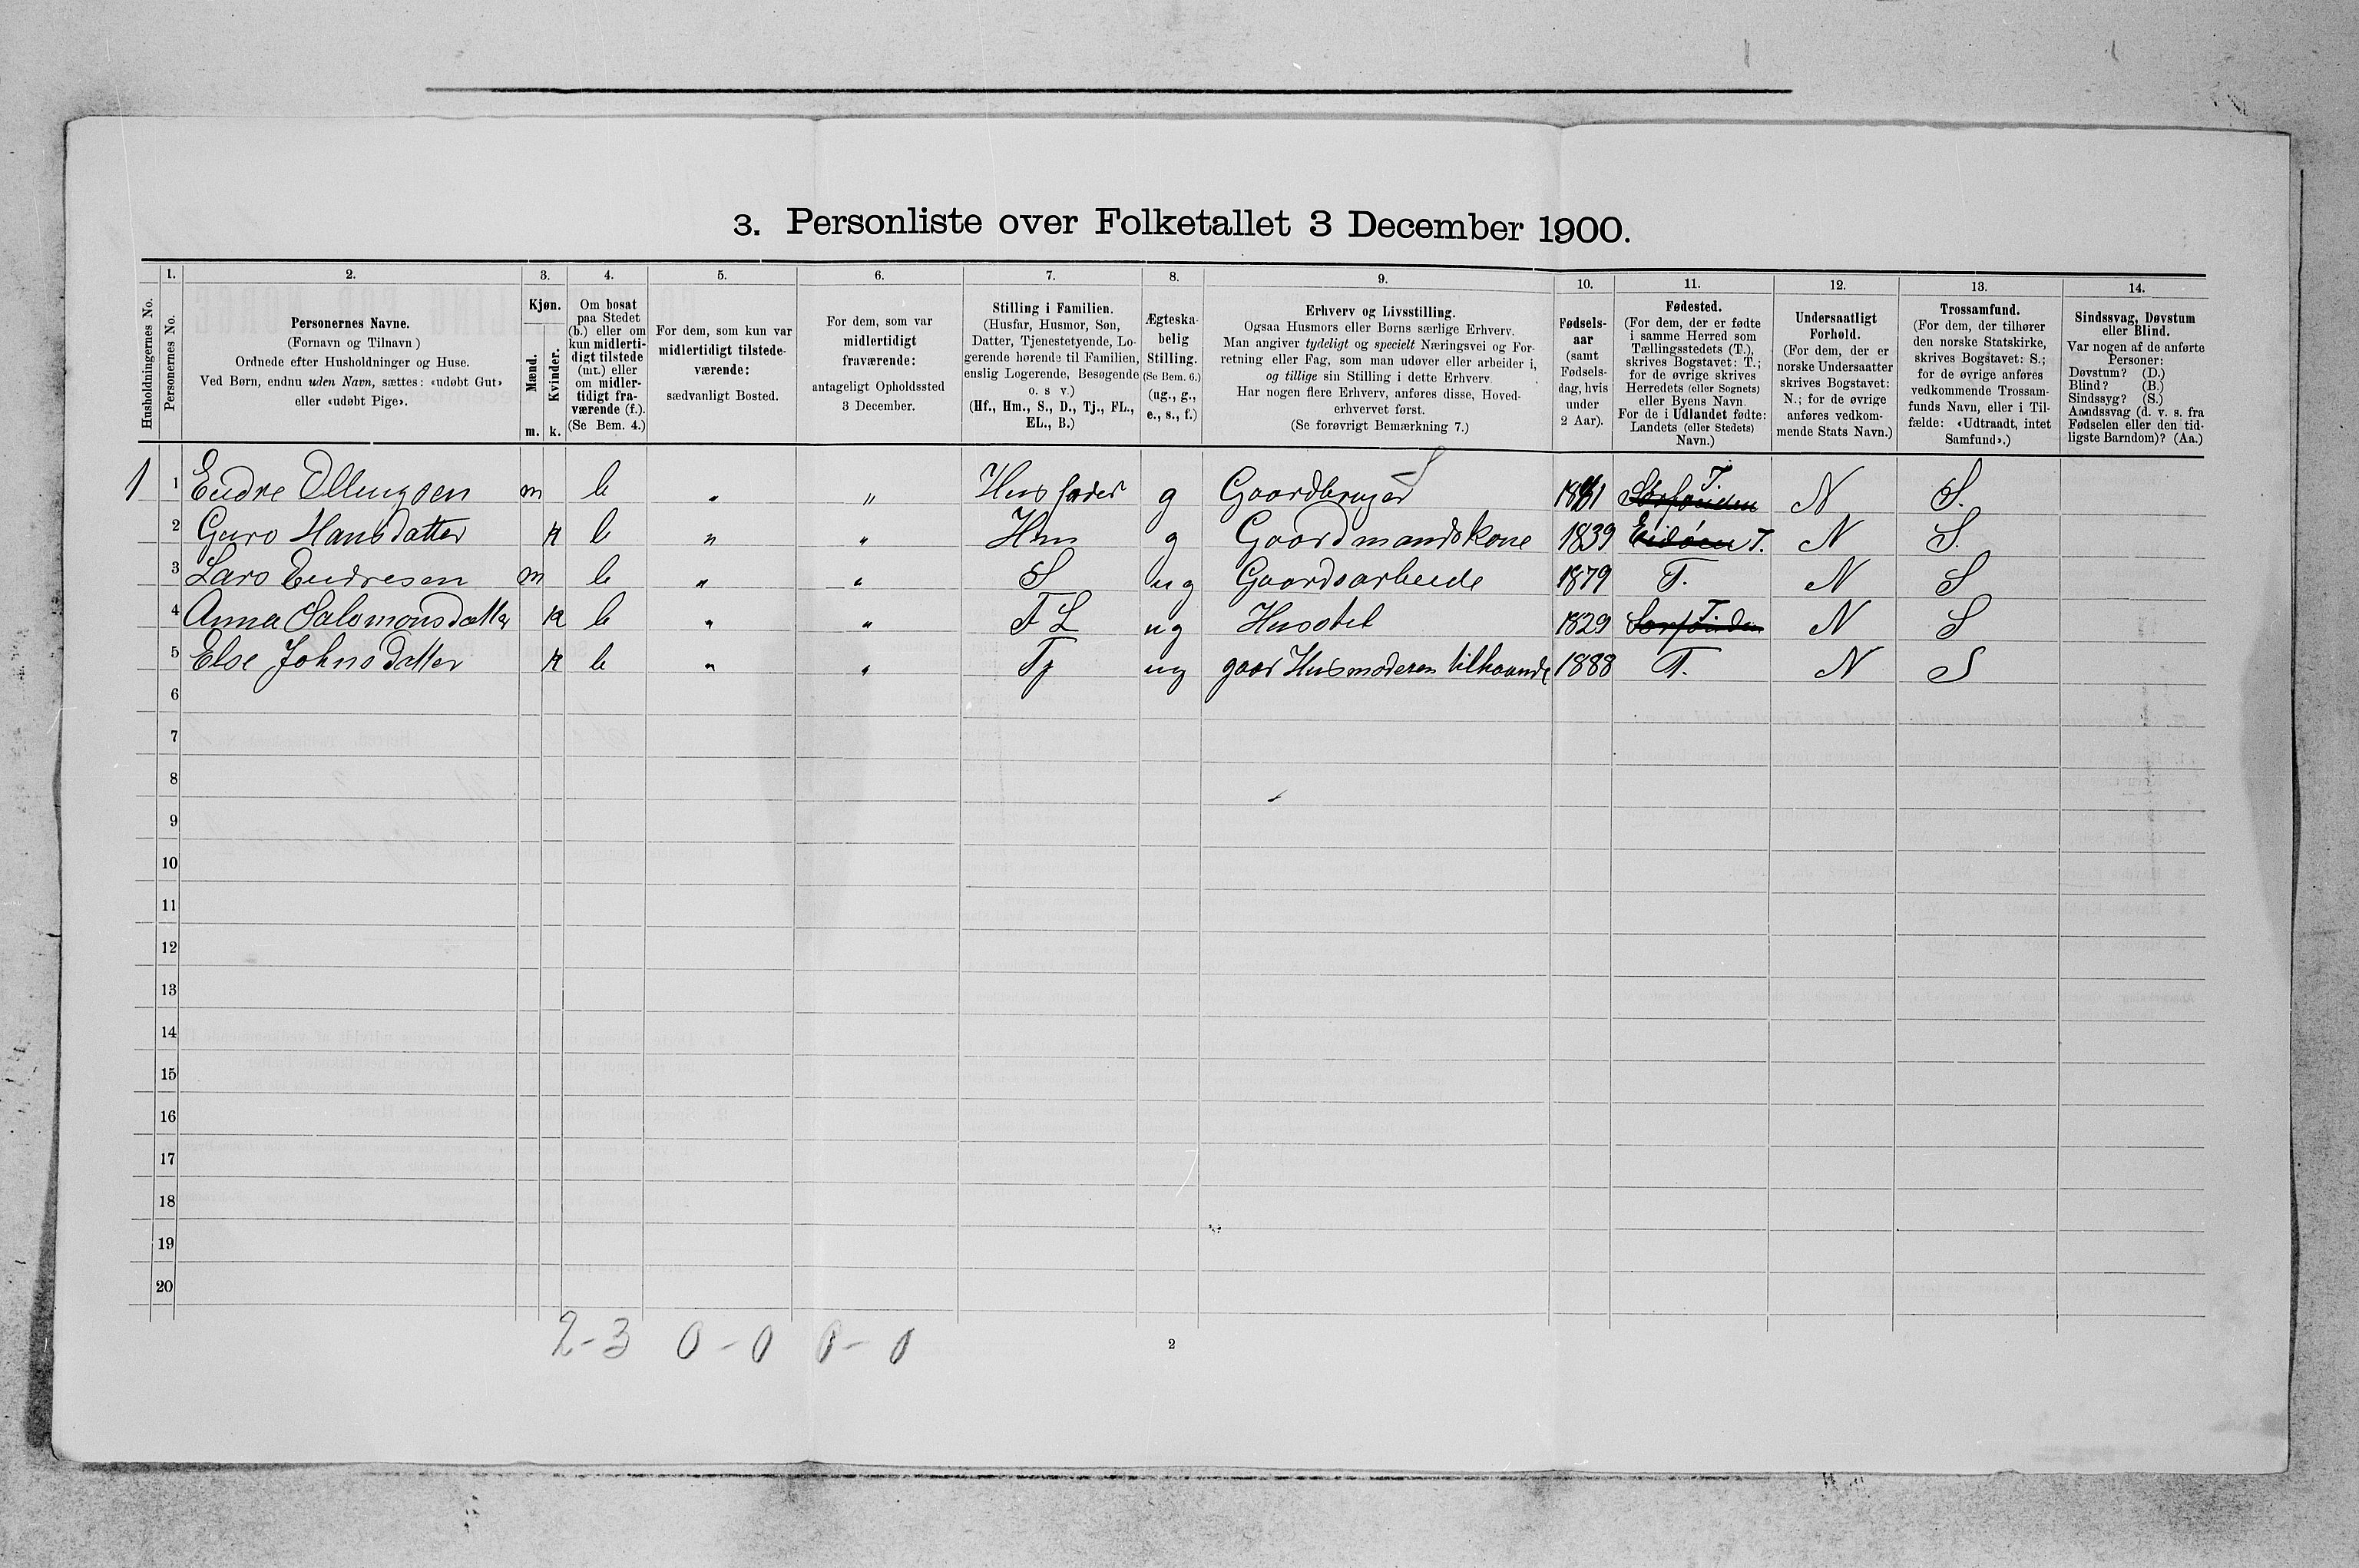 3. Personliste over Folketallet 3 December 1900.
Husholdningernes No.
1.
Personernes No.
2.
Personernes Navne.
(Fornavn og Tilnavn)
Ordnede efter Husholdninger og Huse.
Ved Børn, endnu uden Navn, sættes: «udøbt Gut»
eller «udøbt Pige».
3.
Kjøn.
Mænd.
Kvinder.
m. k.
4.
Om bosat
paa Stedet
(b.) eller om
kun midlerti-
digt tilstede
(mt.) eller
om midler-
tidigt fra-
værende (f.).
(Se Bem. 4.)
5.
For dem, som kun var
midlertidigt tilstede-
værende:
sædvanligt Bosted.
6.
For dem, som var
midlertidigt
fraværende:
antageligt Opholdssted
3 December.
7.
Stilling i Familien.
(Husfar, Husmor, Søn,
Datter, Tjenestetyende, Lo-
gerende hørende til Familien,
enslig Logerende, Besøgende
o. s v.)
(Hf., Hm., S., D., Tj., FL.,
EL., B.)
8.
Ægteska-
belig
Stilling.
(Se Bem. 6.)
(ug., g.,
e., s., f.)
9.
Erhverv og Livsstilling.
Ogsaa Husmors eller Børns særlige Erhverv.
Man angiver tydeligt og specielt Næringsvei og For-
retning eller Fag, som man udøver eller arbeider i,
og tillige sin Stilling i dette Erhverv.
Har nogen flere Erhverv, anføres disse, Hoved-
erhvervet først.
(Se forøvrigt Bemærkning 7.)
10.
Fødsels-
aar
(samt
Fødsels-
dag, hvis
under
2 Aar).
11.
Fødested.
(For dem, der er fødte
i samme Herred som
Tællingsstedets (T.),
skrives Bogstavet: T.;
for de øvrige skrives
Herredets (eller Sognets)
eller Byens Navn.
For de i Udlandet fødte:
Landets (eller Stedets)
Navn.)
12.
Undersaatligt
Forhold.
(For dem, der er
norske Undersaatter
skrives Bogstavet:
N.; for de øvrige
anføres vedkom-
mende Stats Navn.)
13.
Trossamfund.
(For dem, der tilhører
den norske Statskirke,
skrives Bogstavet: S.;
for de øvrige anføres
vedkommende Trossam-
funds Navn, eller i Til-
fælde: «Udtraadt, intet
Samfund».)
14.
Sindssvag, Døvstum
eller Blind.
Var nogen af de anførte
Personer:
Døvstum? (D.)
Blind? (B.)
Sindssyg? (S.)
Aandssvag (d. v. s. fra
Fødselen eller den tid-
ligste Barndom)? (Aa.)
1 1 Endre Ellingsen m b " " Husfader g Gaardbruger S T. N S.
2 Guro Hansdatter k b " " Hm g Gaardmandskone 1839 T. N S.
3 Lars Endresen m b " " S ug Gaardsarbeide 1879 T. N S
4 Anna Salomonsdatter k b " " FL ug Husstel 1829 T. N S
5 Else Johnsdatter k b " " Tj ug gaar Husmoderen tilhaande 1888 T. N S
6
7
8
9
10
11
12
13
14
15
16
17
18
19
20
2-3 0-0 0-0
2